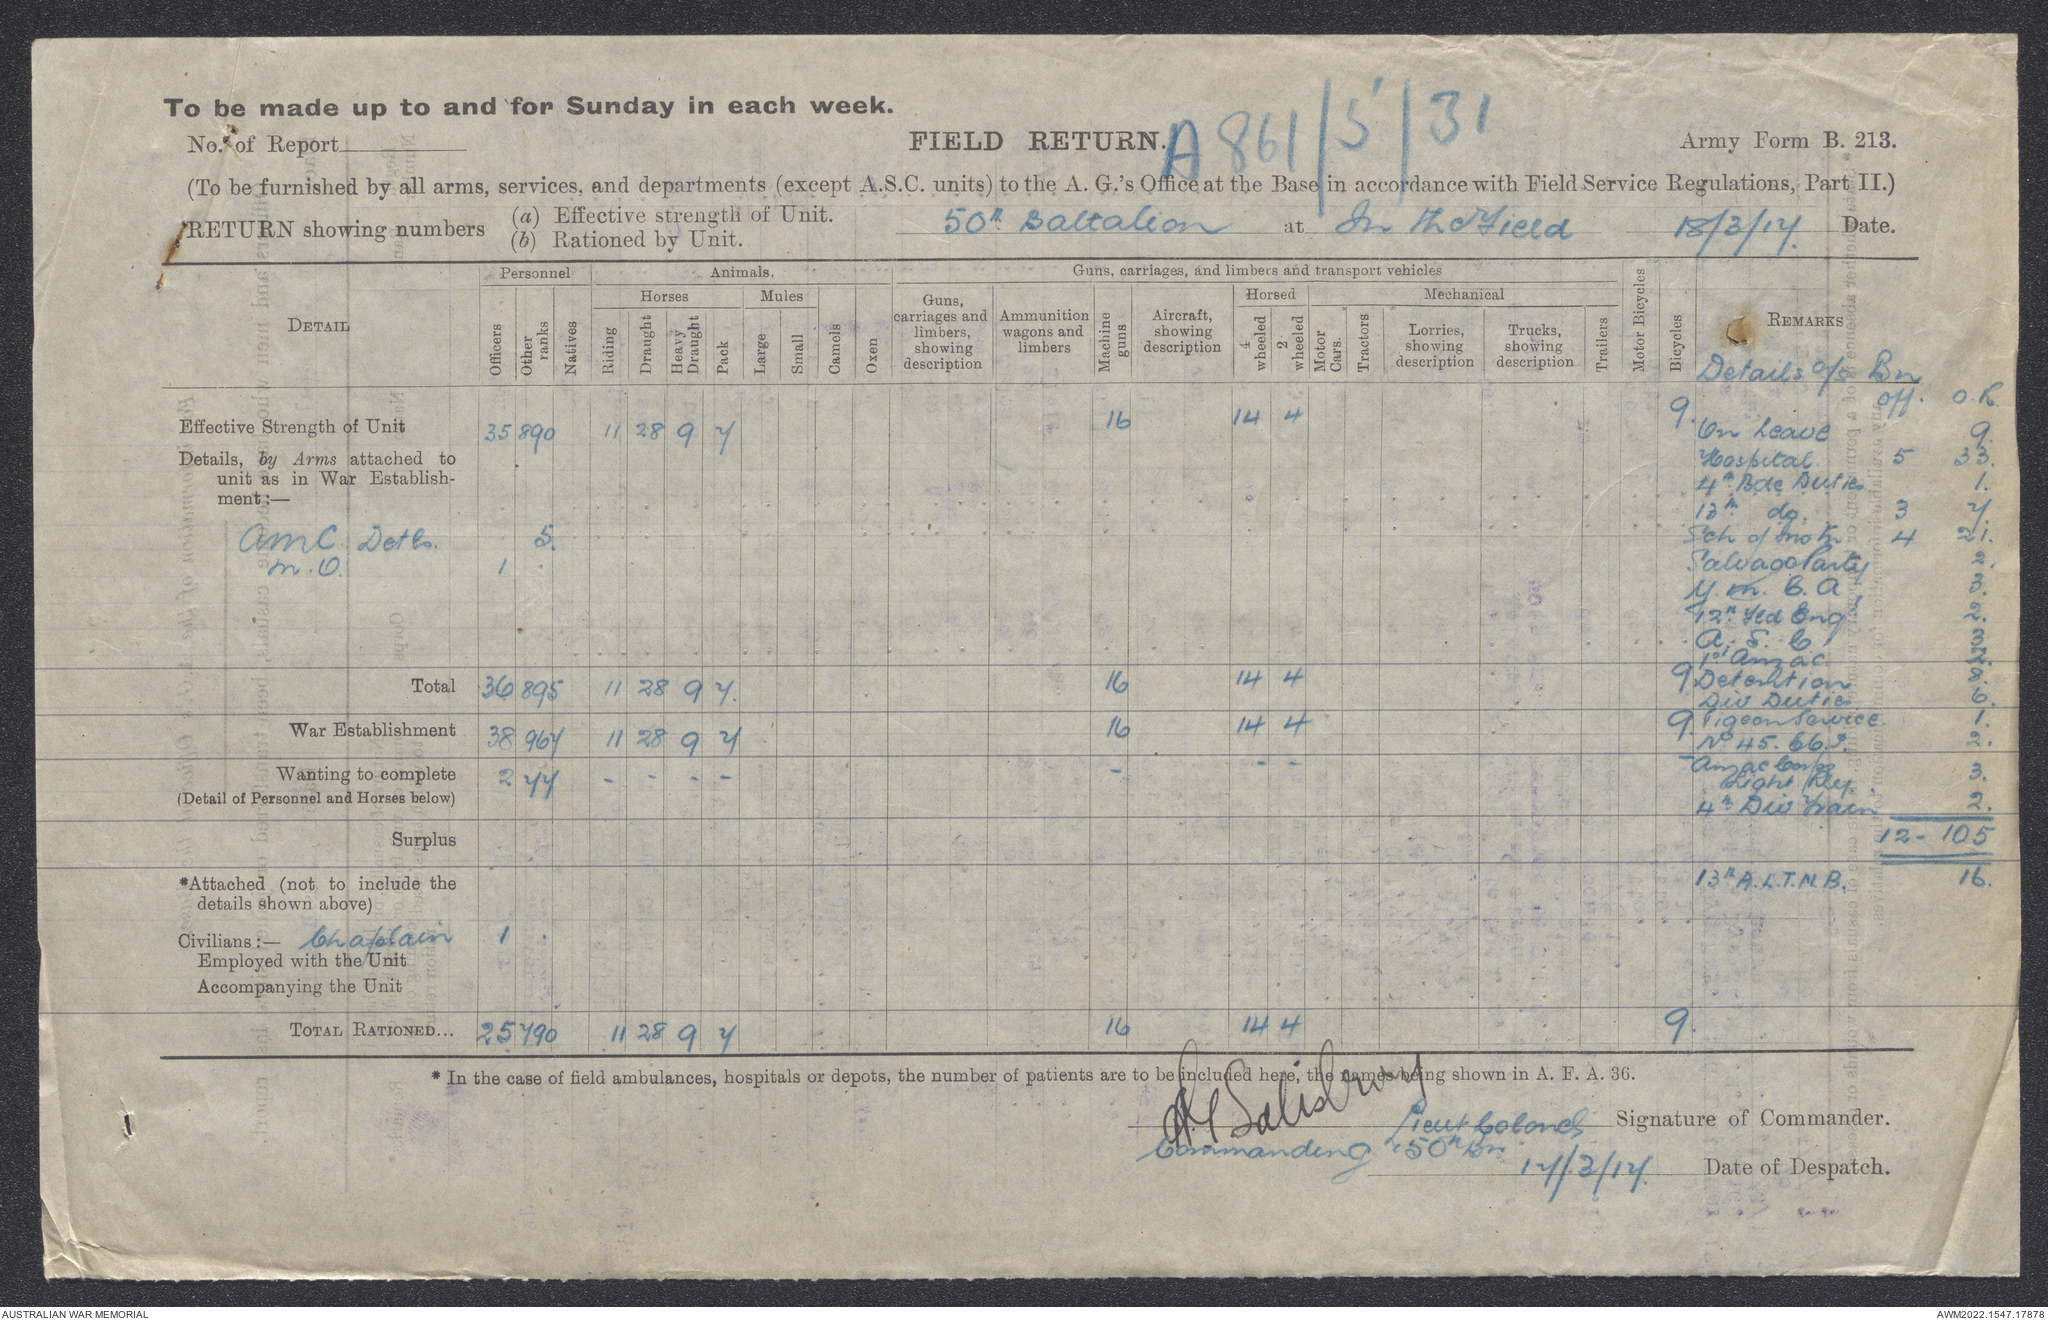 To be made up to and for Sunday in each week.
A861/5/31
No. of Report
FIELD RETURN.
Army Form B. 213.
(To be furnished by all arms, services, and departments (except A.S.C. units) to the A. G.'s Office at the Base in accordance with Field Service Regulations, Part II.)
RETURN showing numbers (a) Effective strength of Unit.
(b) Rationed by Unit.
50th Battalion at In the Field 18/3/17. Date.
DETAIL
Personnel
Animals.
Guns, carriages, and limbers and transport vehicles
Horses Mules
Horsed Mechanical
Officers Other ranks Natives Riding Draught Heavy Draught Pack Large Small Camels Oxen
Guns, carriages and limbers, showing description
Ammunition wagons and limbers
Machine guns
Aircraft, showing description
4 wheeled 2 wheeled Motor Cars. Tractors
Lorries, showing description
Trucks, showing description
Trailers Motor Bicycles Bicycles
REMARKS
Details o/s Bn
Off. O.R.
Effective Strength of Unit 35 890 11 28 9 7 16 14 4 9
Details, by Arms attached to
unit as in War Establish-
ment:—
AMC Detls. 5.
M.O. 1
Total 36 895 11 28 9 7. 16 14 4 9
War Establishment 38 967 11 28 9 7 16 14 4 9
Wanting to complete 2 77 - - - - - - - -
(Detail of Personnel and Horses below)
Surplus
*Attached (not to include the
details shown above)
Civilians:— Chaplain 1
Employed with the Unit
Accompanying the Unit
TOTAL RATIONED... 25 790 11 28 9 7 16 14 4 9.
On Leave 9.
Hospital 5 33.
4th Bde Duties 1.
13th do. 3 7.
Sch of Instn 4 21.
Salvage Party 2.
Y.M.C.A 3.
12th Fld Eng 2.
A.S.C 3
1st Anzac 2.
Detention 8.
Div Duties 6.
Pigeon Service 1.
No 45. 2.
Anzac Corps
Light Rly. 3.
4th Div Train 2.
12 - 105
13th A.L.T.M.B. 16.
* In the case of field ambulances, hospitals or depots, the number of patients are to be included here, the names being shown in A. F. A. 36.
Salisbury
Lieut Colonel Signature of Commander.
Commanding 50th Bn
17/3/17. Date of Despatch.
AUSTRALIAN WAR MEMORIAL
AWM2022.1547.17878